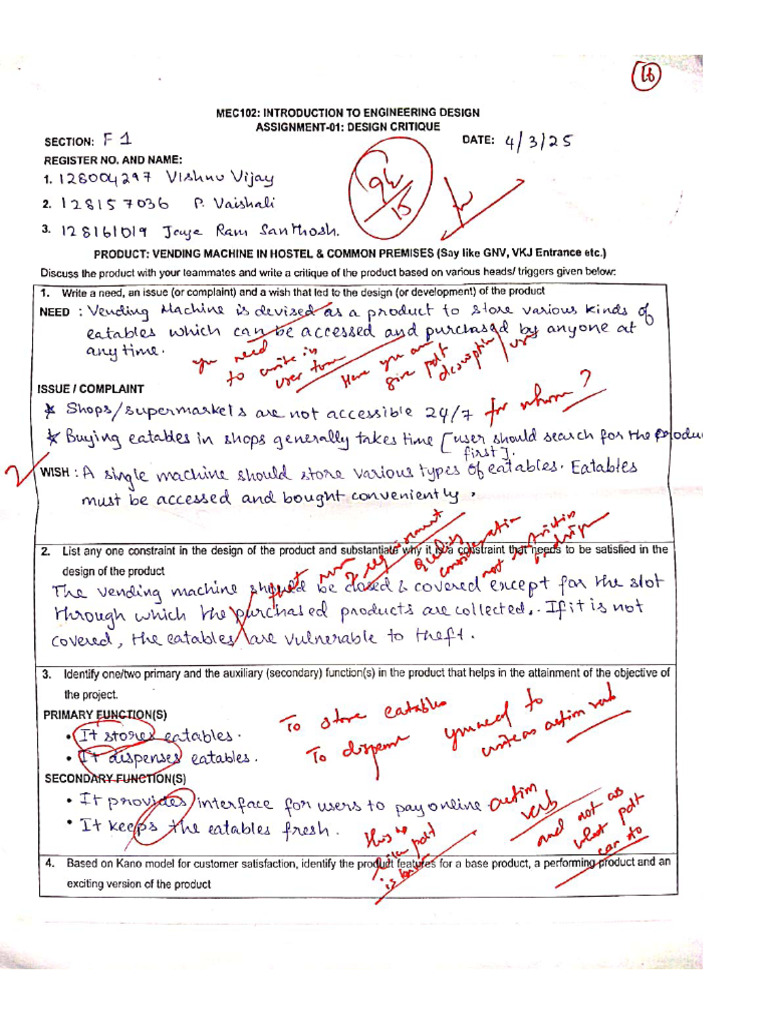 16
MEC102: INTRODUCTION TO ENGINEERING DESIGN
ASSIGNMENT-01: DESIGN CRITIQUE
SECTION: F1
DATE: 4/3/25
REGISTER NO. AND NAME:
1. 128004297 Vishnu Vijay
2. 128157036 P. Vaishali
3. 128161019 Jeya Ram Santhosh.
15
PRODUCT: VENDING MACHINE IN HOSTEL & COMMON PREMISES (Say like GNV, VKJ Entrance etc.)
Discuss the product with your teammates and write a critique of the product based on various heads/ triggers given below:
1. Write a need, an issue (or complaint) and a wish that led to the design (or development) of the product
NEED : Vending Machine is devised as a product to store various kinds of
eatables which can be accessed and purchased by anyone at
any time.
you need
to write in
user tone
Here you are
give pdt
description
ISSUE / COMPLAINT
* Shops/supermarkets are not accessible 24/7
for whom?
* Buying eatables in shops generally takes time [user should search for the produ
first].
2
WISH : A single machine should store various types of eatables. Eatables
must be accessed and bought conveniently.
2. List any one constraint in the design of the product and substantiate why it is a constraint that needs to be satisfied in the
design of the product
requirement
quality
consideration
not
The vending machine should be closed & covered except for the slot
through which the purchased products are collected. If it is not
covered, the eatables are vulnerable to theft.
3. Identify one/two primary and the auxiliary (secondary) function(s) in the product that helps in the attainment of the objective of
the project.
PRIMARY FUNCTION(S)
• It stores eatables.
• It dispenses eatables.
To store eatables
To dispense
you need to
write as action verb
SECONDARY FUNCTION(S)
• It provides interface for users to pay online
• It keeps the eatables fresh.
action
verb
and not as
what pdt
can do
this is
4. Based on Kano model for customer satisfaction, identify the product features for a base product, a performing product and an
exciting version of the product